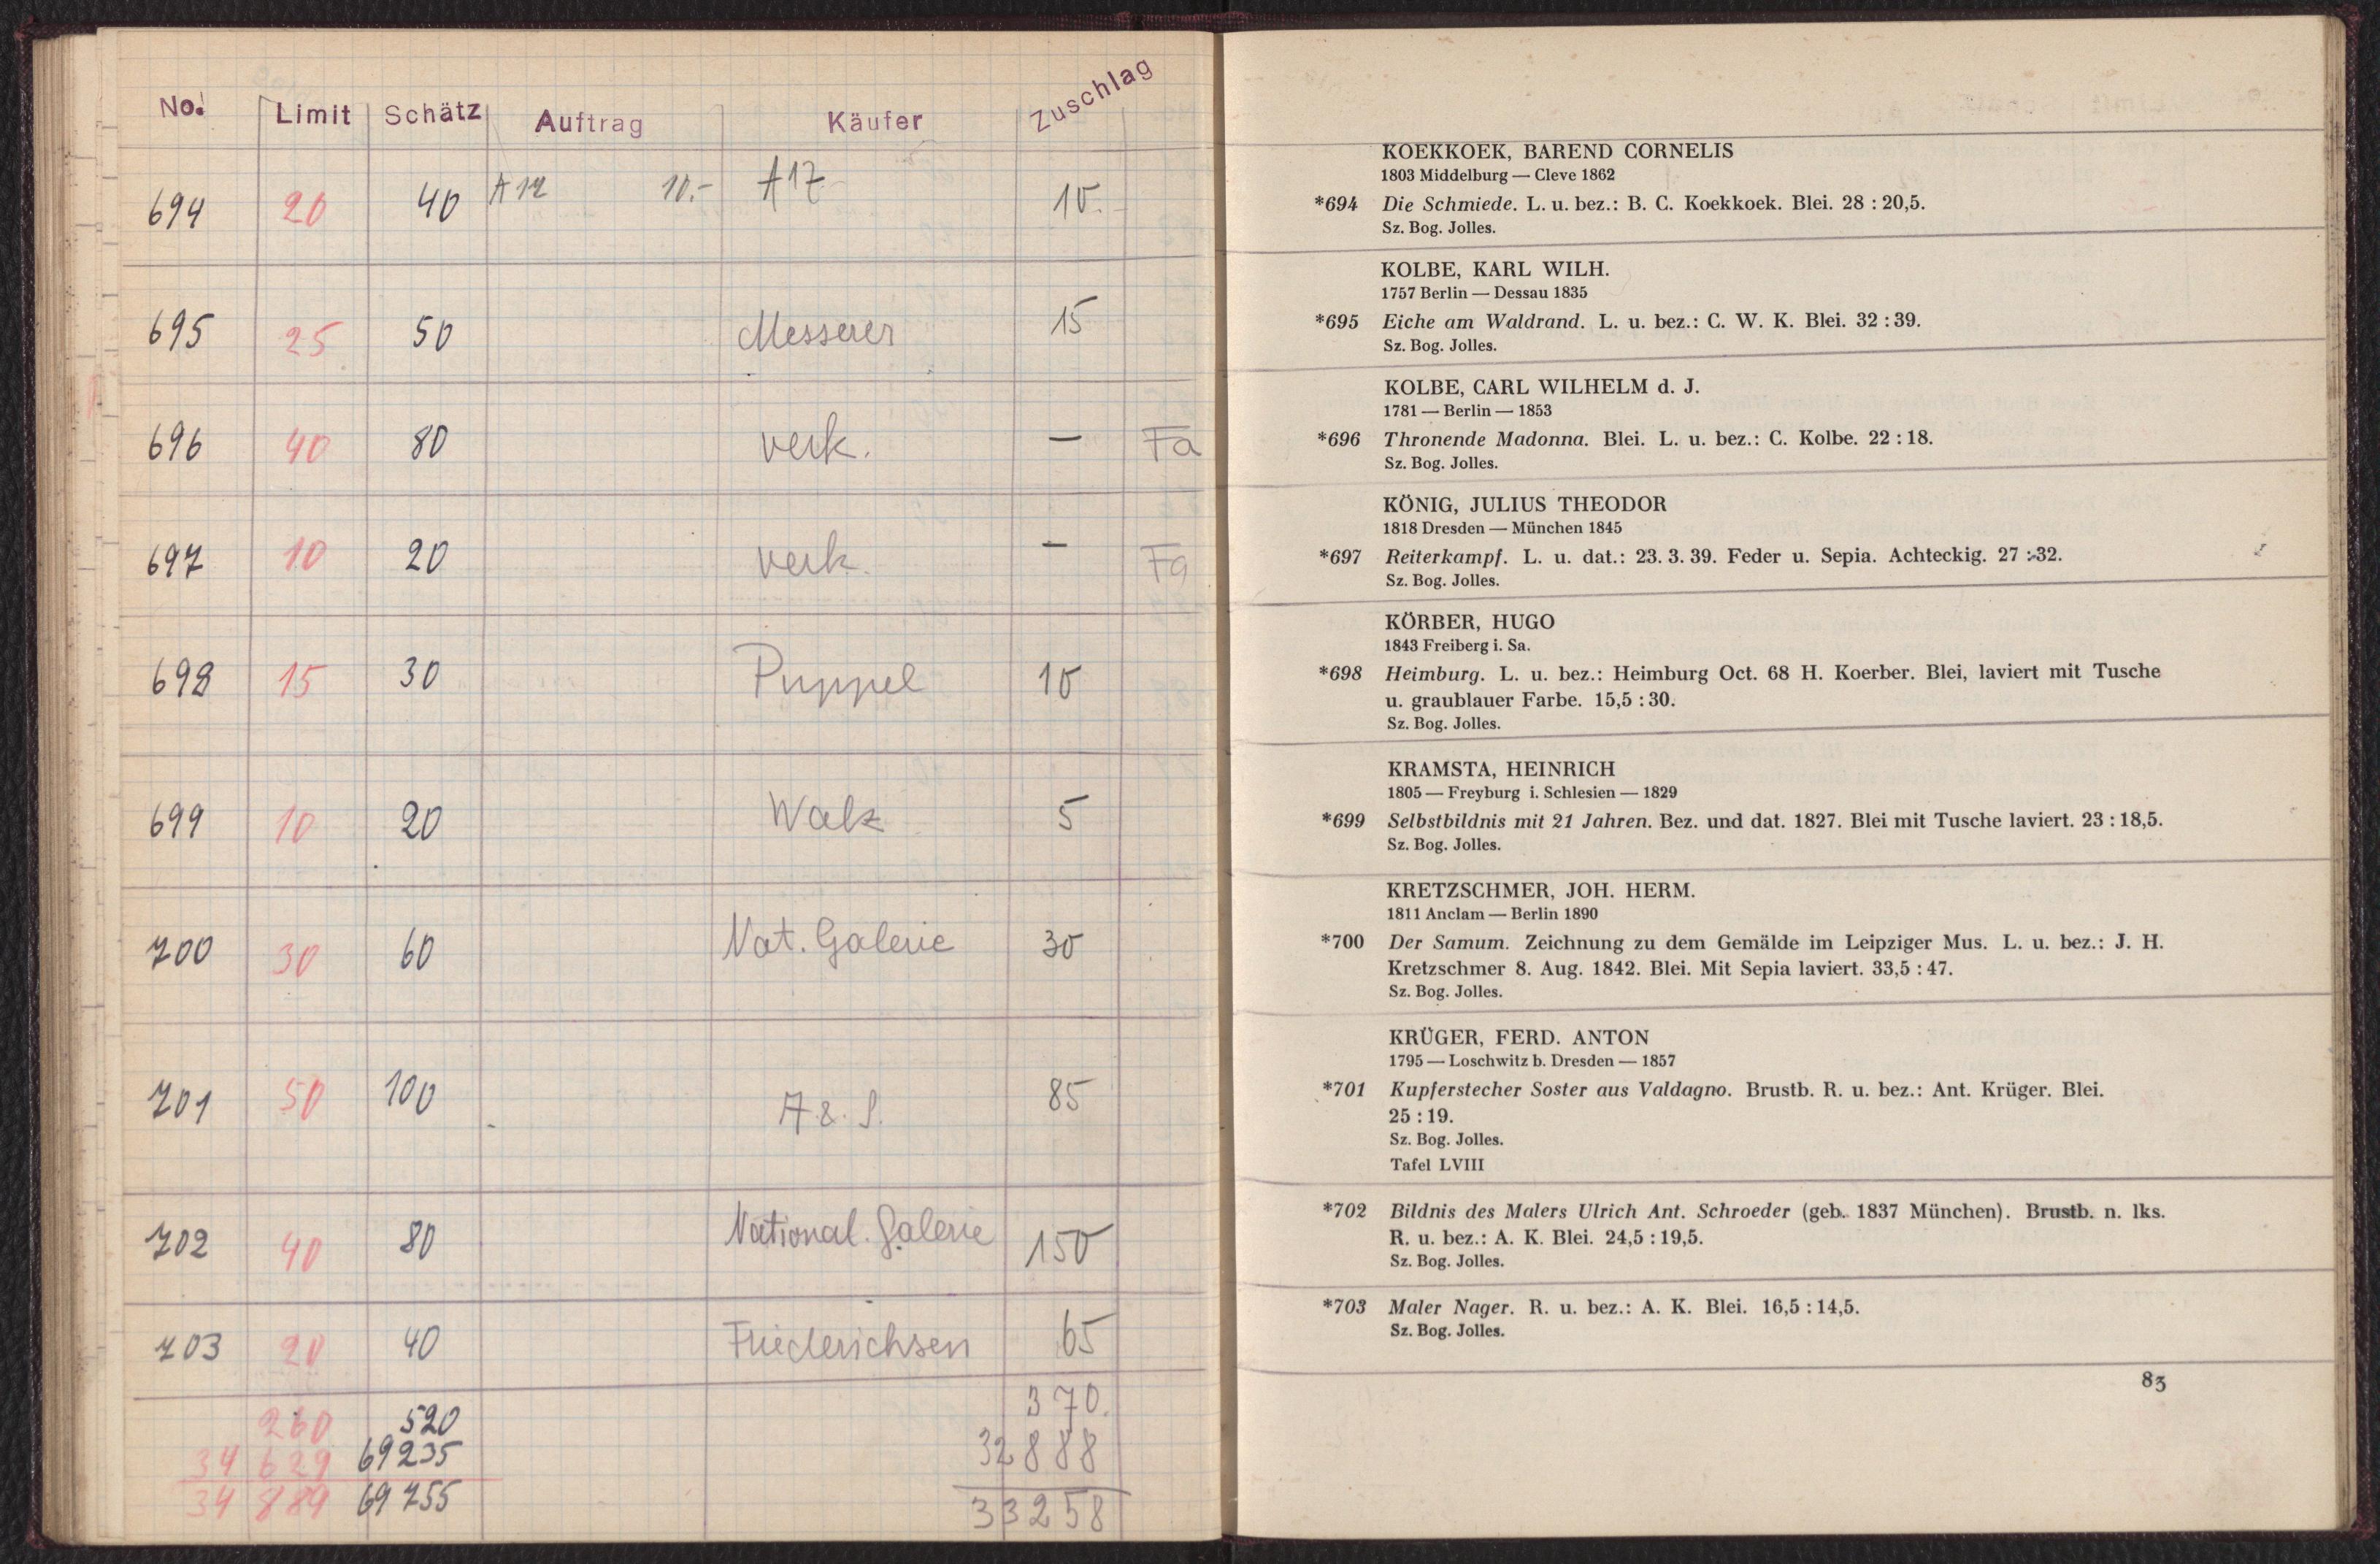 No. Limit Schätz Auftrag Käufer Zuschlag
694 20 40 10.- A17 10.-
695 25 50 Messerer 15
696 40 80 verk. — Fa
697 10 20 verk. — Fa
698 15 30 Puppel 10
699 10 20 Walz 5
700 30 60 Nat. Galerie 30
701 50 100 A. & S. 85
702 40 80 National. Galerie 150
703 20 40 Friederichsen 65
260 520 370.
34 629 69235 32888
34 889 69755 33258
KOEKKOEK, BAREND CORNELIS
1803 Middelburg — Cleve 1862
*694 Die Schmiede. L. u. bez.: B. C. Koekkoek. Blei. 28 : 20,5.
Sz. Bog. Jolles.
KOLBE, KARL WILH.
1757 Berlin — Dessau 1835
*695 Eiche am Waldrand. L. u. bez.: C. W. K. Blei. 32 : 39.
Sz. Bog. Jolles.
KOLBE, CARL WILHELM d. J.
1781 — Berlin — 1853
*696 Thronende Madonna. Blei. L. u. bez.: C. Kolbe. 22 : 18.
Sz. Bog. Jolles.
KÖNIG, JULIUS THEODOR
1818 Dresden — München 1845
*697 Reiterkampf. L. u. dat.: 23. 3. 39. Feder u. Sepia. Achteckig. 27 : 32.
Sz. Bog. Jolles.
KÖRBER, HUGO
1843 Freiberg i. Sa.
*698 Heimburg. L. u. bez.: Heimburg Oct. 68 H. Koerber. Blei, laviert mit Tusche
u. graublauer Farbe. 15,5 : 30.
Sz. Bog. Jolles.
KRAMSTA, HEINRICH
1805 — Freyburg i. Schlesien — 1829
*699 Selbstbildnis mit 21 Jahren. Bez. und dat. 1827. Blei mit Tusche laviert. 23 : 18,5.
Sz. Bog. Jolles.
KRETZSCHMER, JOH. HERM.
1811 Anclam — Berlin 1890
*700 Der Samum. Zeichnung zu dem Gemälde im Leipziger Mus. L. u. bez.: J. H.
Kretzschmer 8. Aug. 1842. Blei. Mit Sepia laviert. 33,5 : 47.
Sz. Bog. Jolles.
KRÜGER, FERD. ANTON
1795 — Loschwitz b. Dresden — 1857
*701 Kupferstecher Soster aus Valdagno. Brustb. R. u. bez.: Ant. Krüger. Blei.
25 : 19.
Sz. Bog. Jolles.
Tafel LVIII
*702 Bildnis des Malers Ulrich Ant. Schroeder (geb. 1837 München). Brustb. n. lks.
R. u. bez.: A. K. Blei. 24,5 : 19,5.
Sz. Bog. Jolles.
*703 Maler Nager. R. u. bez.: A. K. Blei. 16,5 : 14,5.
Sz. Bog. Jolles.
83